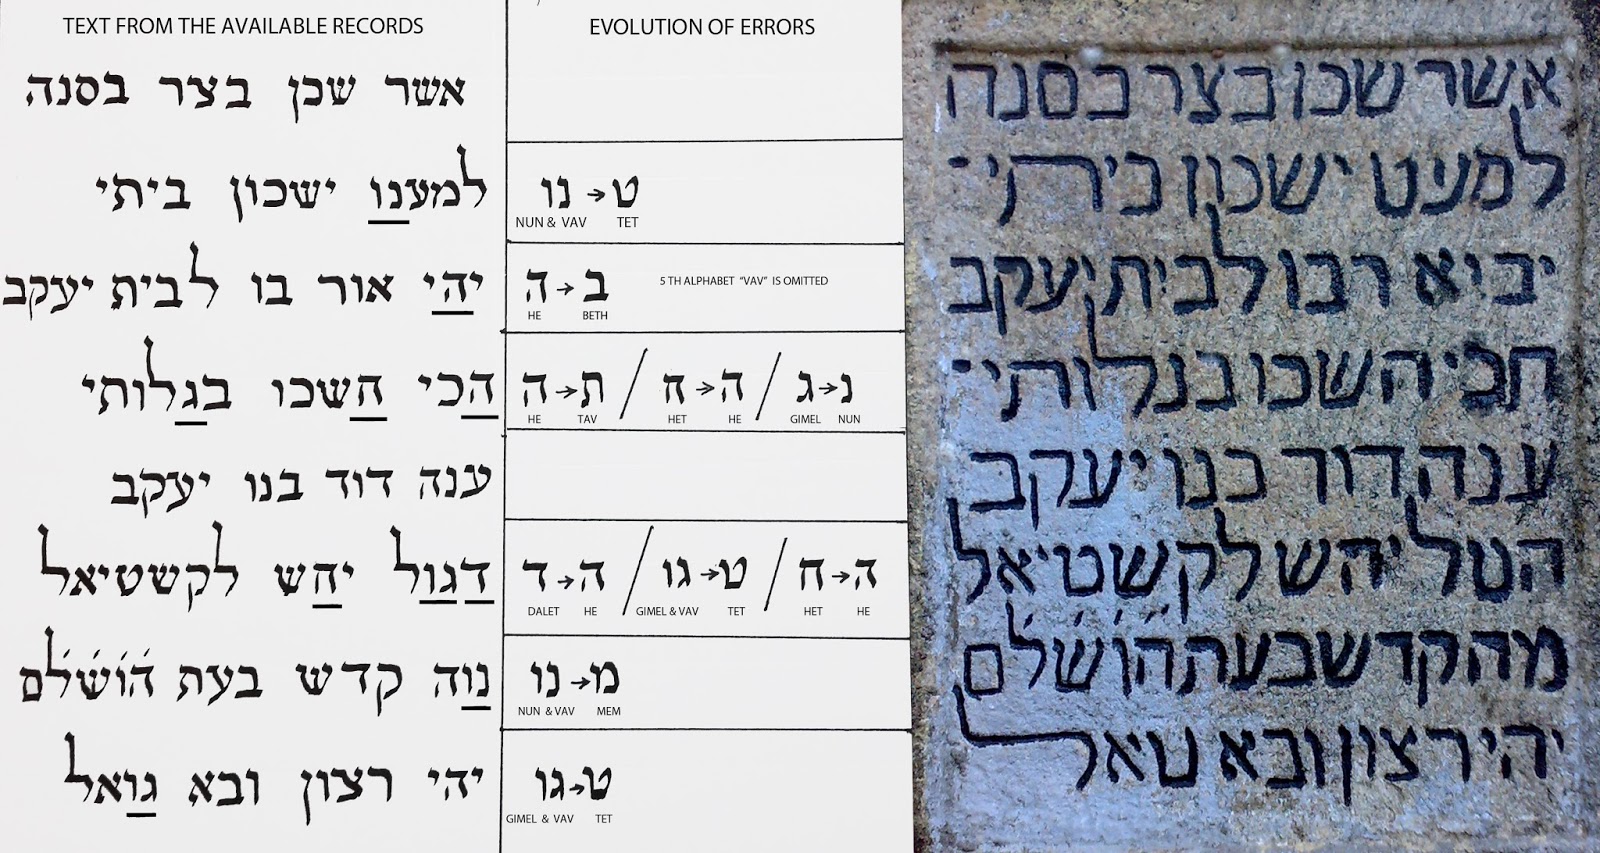 TEXT FROM THE AVAILABLE RECORDS
אשר שכן בצר בסנה
למענו ישכון ביתי
יהי אור בו לבית יעקב
הכי חשכו בגלותי
ענה דוד בנו יעקב
דגול יחש לקשטיאל
נוה קדש בעת הׄוׄשׄלׄם
יהי רצון ובא גואל
EVOLUTION OF ERRORS
נו → ט
NUN & VAV TET
ה → ב 5 TH ALPHABET “VAV” IS OMITTED
HE BETH
ה → ת / ח → ה / ג → נ
HE TAV HET HE GIMEL NUN
ד → ה / גו → ט / ח → ה
DALET HE GIMEL & VAV TET HET HE
נו → מ
NUN & VAV MEM
גו → ט
GIMEL & VAV TET
אשר שכו בצר בסנה
למעט ישכון ביתי־
יביא רבו לבית יעקב
תכי השכו בנלותי־
ענה דור בנו יעקב
הטל יהש לקשטיאל
מה קדש בעת הׄוׄשׄלׄם
יהי רצון ובא טאל